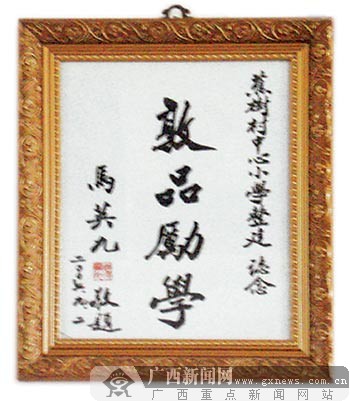 蕉樹村中心小學整建 誌念
敦品勵學
馬英九 敬題
二〇〇七、九、二
广西新闻网
www.gxnews.com.cn
广西重点新闻网站